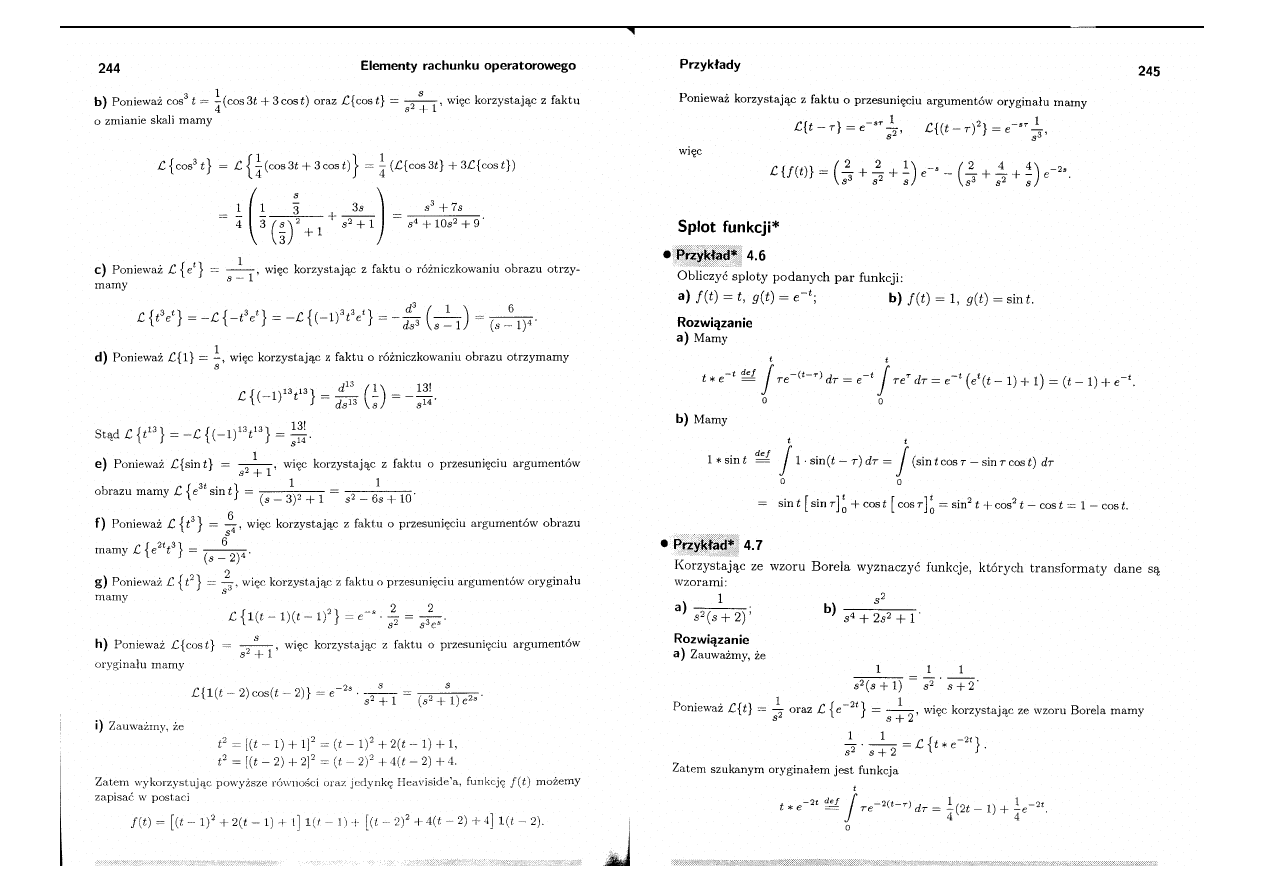 244 Elementy rachunku operatorowego
b) Ponieważ cos³ t = 1/4 (cos 3t + 3 cos t) oraz ℒ{cos t} = s/(s² + 1), więc korzystając z faktu
o zmianie skali mamy
ℒ{cos³ t} = ℒ{1/4 (cos 3t + 3 cos t)} = 1/4 (ℒ{cos 3t} + 3ℒ{cos t})
= 1/4 (1/3 · (s/3)/((s/3)² + 1) + 3s/(s² + 1)) = (s³ + 7s)/(s⁴ + 10s² + 9).
c) Ponieważ ℒ{eᵗ} = 1/(s − 1), więc korzystając z faktu o różniczkowaniu obrazu otrzy-
mamy
ℒ{t³eᵗ} = −ℒ{−t³eᵗ} = −ℒ{(−1)³t³eᵗ} = − d³/ds³ (1/(s − 1)) = 6/(s − 1)⁴.
d) Ponieważ ℒ{1} = 1/s, więc korzystając z faktu o różniczkowaniu obrazu otrzymamy
ℒ{(−1)¹³t¹³} = d¹³/ds¹³ (1/s) = − 13!/s¹⁴.
Stąd ℒ{t¹³} = −ℒ{(−1)¹³t¹³} = 13!/s¹⁴.
e) Ponieważ ℒ{sin t} = 1/(s² + 1), więc korzystając z faktu o przesunięciu argumentów
obrazu mamy ℒ{e³ᵗ sin t} = 1/((s − 3)² + 1) = 1/(s² − 6s + 10).
f) Ponieważ ℒ{t³} = 6/s⁴, więc korzystając z faktu o przesunięciu argumentów obrazu
mamy ℒ{e²ᵗt³} = 6/(s − 2)⁴.
g) Ponieważ ℒ{t²} = 2/s³, więc korzystając z faktu o przesunięciu argumentów oryginału
mamy
ℒ{1(t − 1)(t − 1)²} = e⁻ˢ · 2/s² = 2/(s³eˢ).
h) Ponieważ ℒ{cos t} = s/(s² + 1), więc korzystając z faktu o przesunięciu argumentów
oryginału mamy
ℒ{1(t − 2) cos(t − 2)} = e⁻²ˢ · s/(s² + 1) = s/((s² + 1) e²ˢ).
i) Zauważmy, że
t² = [(t − 1) + 1]² = (t − 1)² + 2(t − 1) + 1,
t² = [(t − 2) + 2]² = (t − 2)² + 4(t − 2) + 4.
Zatem wykorzystując powyższe równości oraz jedynkę Heaviside'a, funkcję f(t) możemy
zapisać w postaci
f(t) = [(t − 1)² + 2(t − 1) + 1] 1(t − 1) + [(t − 2)² + 4(t − 2) + 4] 1(t − 2).
Przykłady 245
Ponieważ korzystając z faktu o przesunięciu argumentów oryginału mamy
ℒ{t − τ} = e^(−sτ) 1/s², ℒ{(t − τ)²} = e^(−sτ) 1/s³,
więc
ℒ{f(t)} = (2/s³ + 2/s² + 1/s) e⁻ˢ − (2/s³ + 4/s² + 4/s) e⁻²ˢ.
Splot funkcji*
• Przykład* 4.6
Obliczyć sploty podanych par funkcji:
a) f(t) = t, g(t) = e⁻ᵗ; b) f(t) = 1, g(t) = sin t.
Rozwiązanie
a) Mamy
t ∗ e⁻ᵗ def= ∫₀ᵗ τe^(−(t−τ)) dτ = e⁻ᵗ ∫₀ᵗ τe^τ dτ = e⁻ᵗ (eᵗ(t − 1) + 1) = (t − 1) + e⁻ᵗ.
b) Mamy
1 ∗ sin t def= ∫₀ᵗ 1 · sin(t − τ) dτ = ∫₀ᵗ (sin t cos τ − sin τ cos t) dτ
= sin t [sin τ]₀ᵗ + cos t [cos τ]₀ᵗ = sin² t + cos² t − cos t = 1 − cos t.
• Przykład* 4.7
Korzystając ze wzoru Borela wyznaczyć funkcje, których transformaty dane są
wzorami:
a) 1/(s²(s + 2)); b) s²/(s⁴ + 2s² + 1).
Rozwiązanie
a) Zauważmy, że
1/(s²(s + 1)) = 1/s² · 1/(s + 2).
Ponieważ ℒ{t} = 1/s² oraz ℒ{e⁻²ᵗ} = 1/(s + 2), więc korzystając ze wzoru Borela mamy
1/s² · 1/(s + 2) = ℒ{t ∗ e⁻²ᵗ}.
Zatem szukanym oryginałem jest funkcja
t ∗ e⁻²ᵗ def= ∫₀ᵗ τe^(−2(t−τ)) dτ = 1/4 (2t − 1) + 1/4 e⁻²ᵗ.